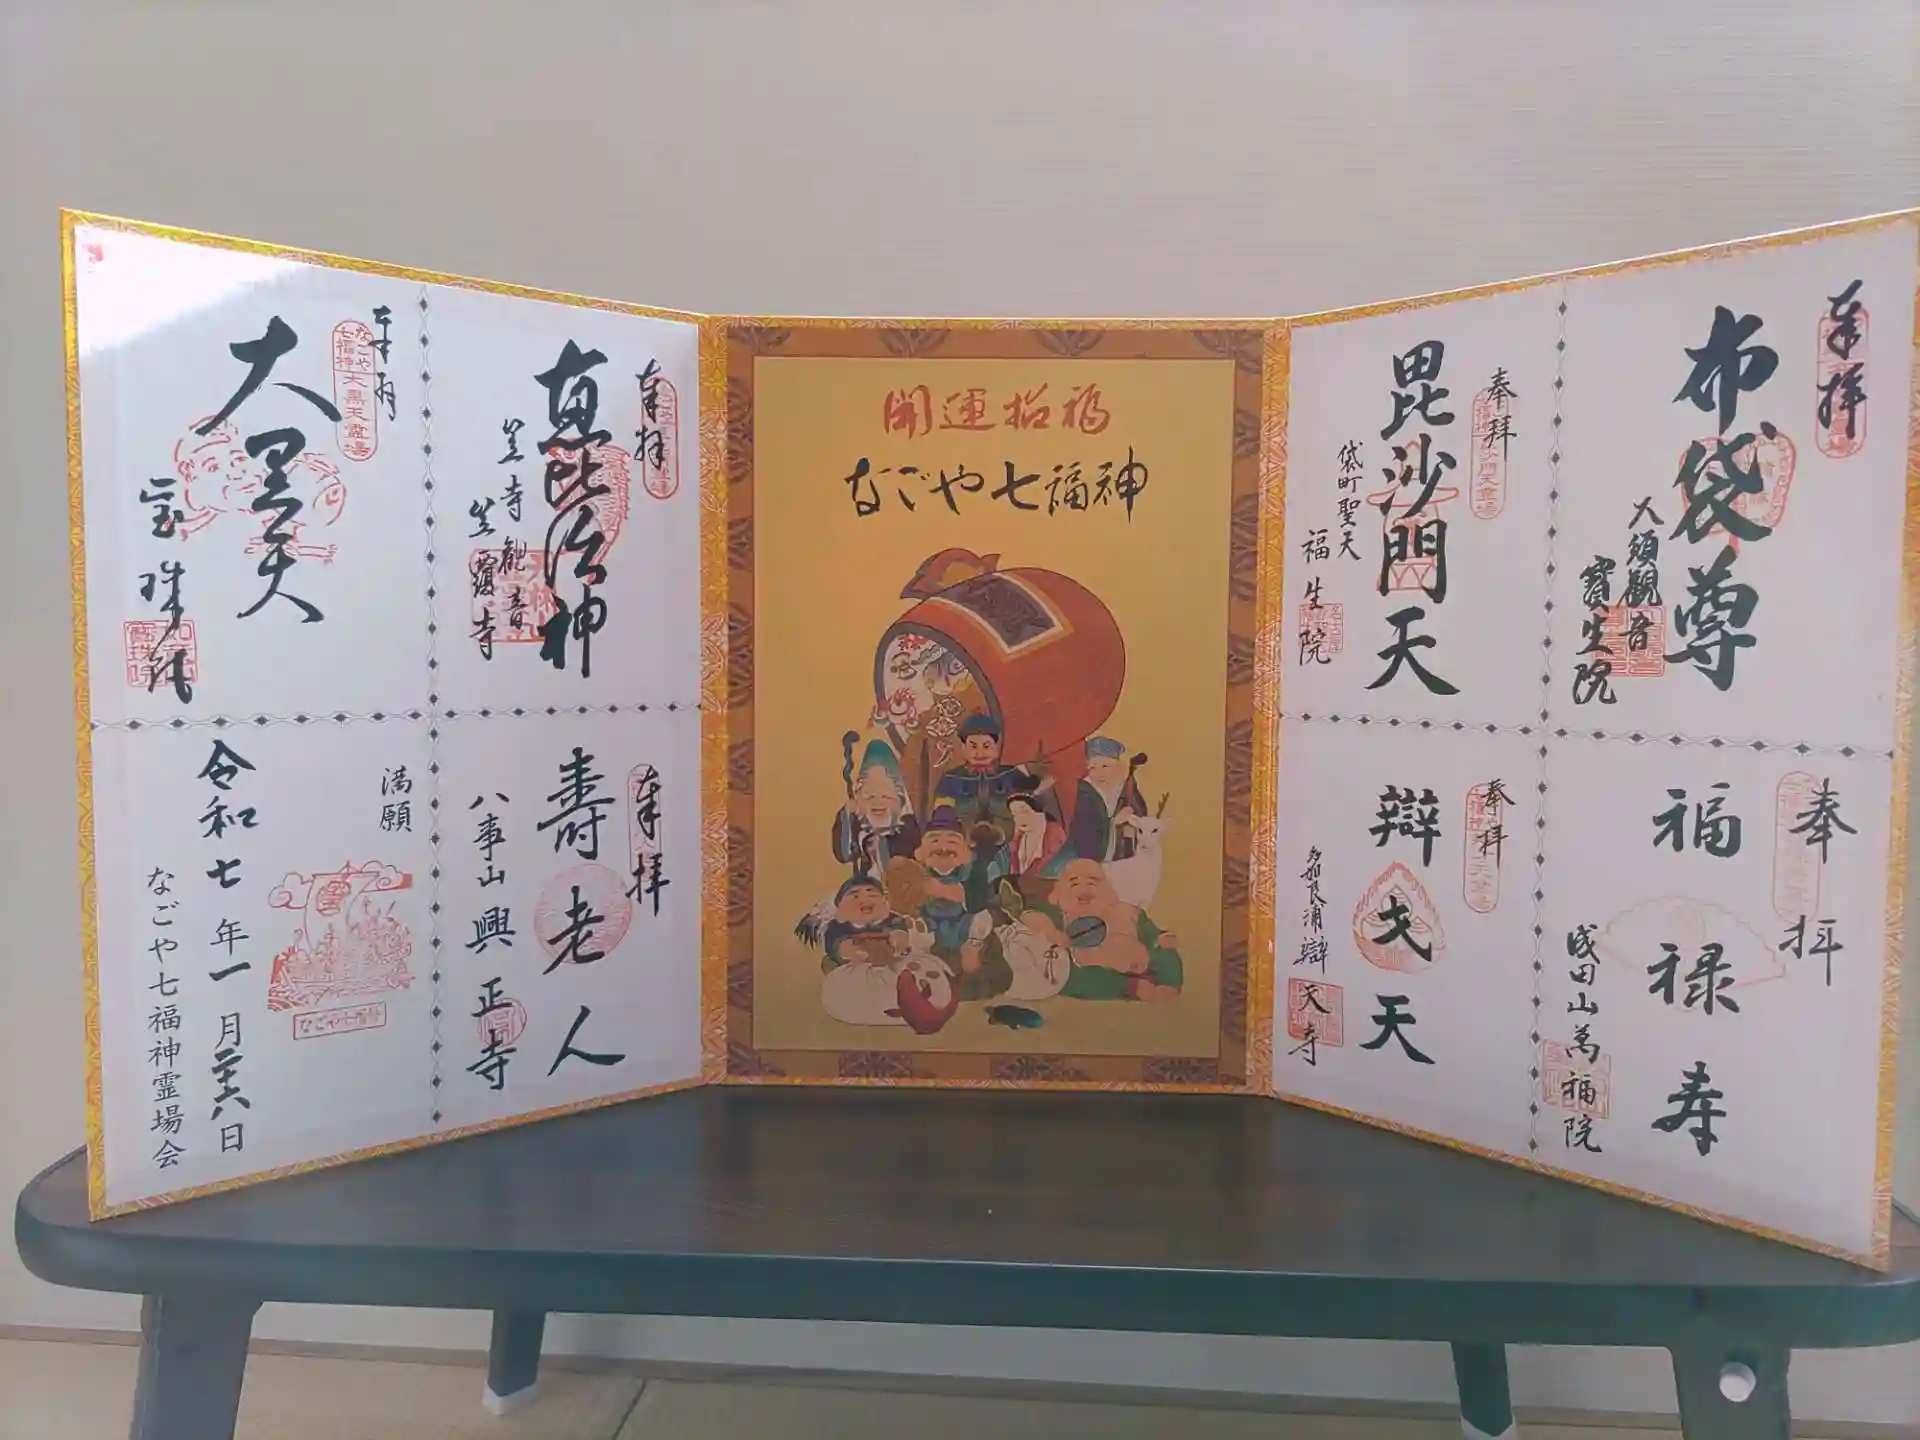 奉拝
布袋尊
大須観音
寳生院
奉拝
毘沙門天
袋町聖天
福生院
奉拝
福禄寿
成田山萬福院
奉拝
辯才天
辯天寺
開運招福
なごや七福神
奉拝
恵比須神
笠寺観音
笠覆寺
奉拝
大黒天
なごや七福神大黒天霊場
宝珠院
奉拝
寿老人
八事山興正寺
満願
なごや七福神
令和七年一月二十八日
なごや七福神霊場会